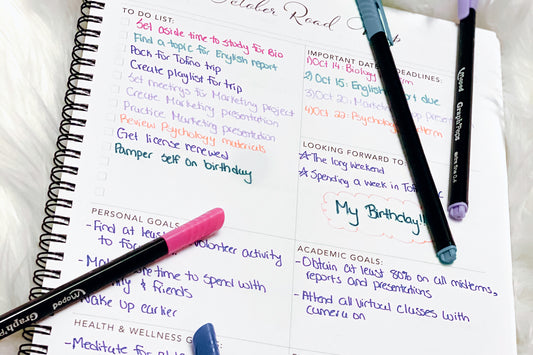 October Road
TO DO LIST:
Set aside time to study for Bio
Find a topic for English report
Pack for Tofino trip
Create playlist for trip
Set meetings for Marketing project
Create Marketing presentation
Practice Marketing presentation
Review Psychology materials
Get license renewed
Pamper self on birthday
IMPORTANT DATES DEADLINES:
1) Oct 14: Biology
2) Oct 15: English due
3) Oct 20: Marketing
4) Oct 22: Psychology
LOOKING FORWARD TO
The long weekend
Spending a week in
My Birthday!!
PERSONAL GOALS
- Find at least volunteer activity
to
- time to spend with
& friends
Wake up earlier
ACADEMIC GOALS:
- Obtain at least 80% on all midterms,
reports and presentations
- Attend all virtual classes with
camera on
HEALTH & WELLNESS
- Meditate for
Maped Graph'Peps
Maped Graph'P